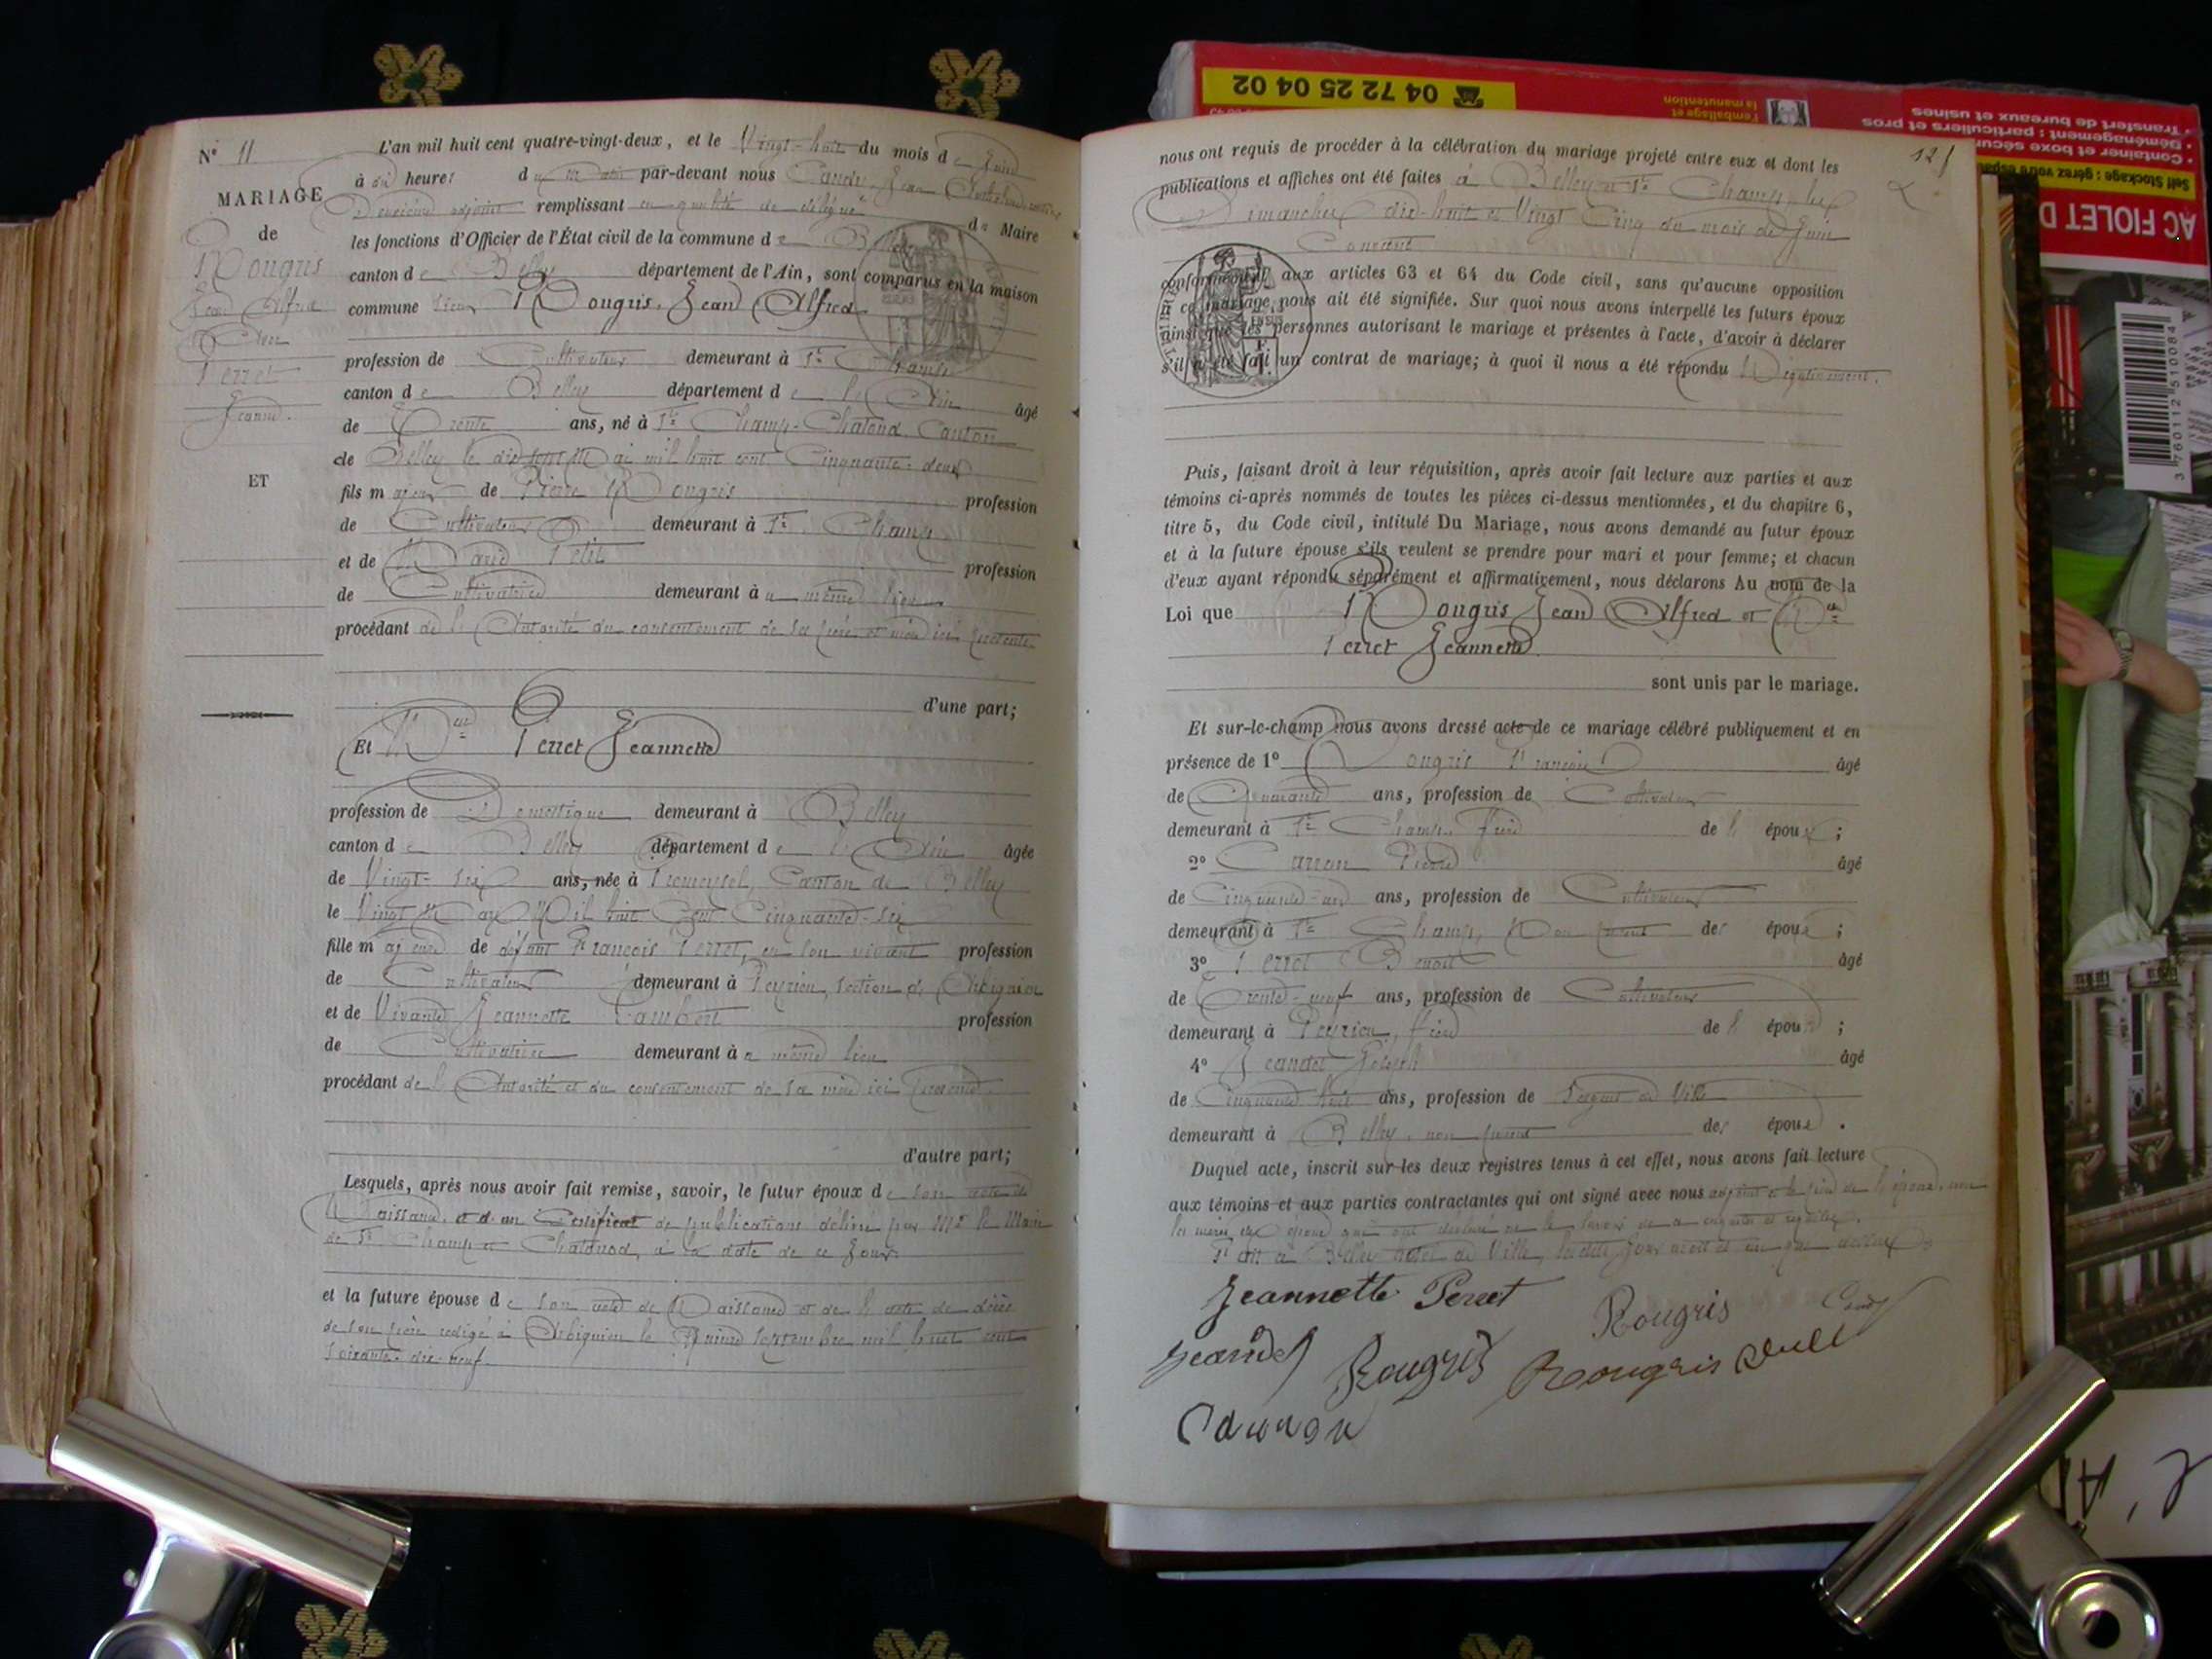 N° 11
MARIAGE
de
Rougris
Jean Alfred
et Delle
Perret
Jeannette
ET
L'an mil huit cent quatre-vingt-deux, et le Vingt-huit du mois de Juin
à dix heures du Matin par-devant nous Jean
Deuxième adjoint remplissant en qualité de délégué de Maire
les fonctions d'Officier de l'État civil de la commune de Belley
canton de Belley département de l'Ain, sont comparus en la maison
commune Rougris Jean Alfred
profession de Cultivateur demeurant à St Champ
canton de Belley département de l'Ain âgé
de Trente ans, né à St Champ-Chatonod Canton
de Belley le dix sept Mai mil huit cent Cinquante-deux
fils majeur de Pierre Rougris profession
de Cultivateur demeurant à St Champ
et de Marie Petit profession
de Cultivatrice demeurant au même lieu
procédant de l'Autorité du consentement de ses père et mère ici présents
d'une part;
Et Delle Perret Jeannette
profession de Domestique demeurant à Belley
canton de Belley département de l'Ain âgée
de Vingt-six ans, née à Premeyzel, Canton de Belley
le Vingt Mil huit Cent Cinquante-six
fille majeure de défunt François Perret, en son vivant profession
de Cultivateur demeurant à Peyrieu, section d'Arbignieu
et de Vivante Jeannette Lambert profession
de Cultivatrice demeurant au même lieu
procédant de l'Autorité et du consentement de sa mère ici présente
d'autre part;
Lesquels, après nous avoir fait remise, savoir, le futur époux de son acte de
Naissance, et d'un Certificat de publications délivré par Mr le Maire
de St Champ et Chatonod, à la date de ce Jour
et la future épouse de son acte de Naissance et de l'acte de décès
de son père rédigé à Arbignieu le Quinze Septembre mil huit cent
soixante-dix-neuf
121
nous ont requis de procéder à la célébration du mariage projeté entre eux et dont les
publications et affiches ont été faites à Belley et St Champ les
Dimanches dix-huit et Vingt Cinq du mois de Juin
Courant
conformément aux articles 63 et 64 du Code civil, sans qu'aucune opposition
à ce mariage nous ait été signifiée. Sur quoi nous avons interpellé les futurs époux
ainsi que les personnes autorisant le mariage et présentes à l'acte, d'avoir à déclarer
s'il a été fait un contrat de mariage; à quoi il nous a été répondu Négativement.
Puis, faisant droit à leur réquisition, après avoir fait lecture aux parties et aux
témoins ci-après nommés de toutes les pièces ci-dessus mentionnées, et du chapitre 6,
titre 5, du Code civil, intitulé Du Mariage, nous avons demandé au futur époux
et à la future épouse s'ils veulent se prendre pour mari et pour femme; et chacun
d'eux ayant répondu séparément et affirmativement, nous déclarons Au nom de la
Loi que Rougris Jean Alfred et Delle
Perret Jeannette
sont unis par le mariage.
Et sur-le-champ nous avons dressé acte de ce mariage célébré publiquement et en
présence de 1° Rougris François âgé
de Quarante ans, profession de Cultivateur
demeurant à St Champ, frère de l'époux;
2° Carron Pierre âgé
de Cinquante-un ans, profession de Cultivateur
demeurant à St Champ, Non parent des époux;
3° Perret Benoit âgé
de Trente-neuf ans, profession de Cultivateur
demeurant à Peyrieu, frère de l'épouse;
4° Jeandet Joseph âgé
de Cinquante trois ans, profession de Sergent de Ville
demeurant à Belley, non parent des époux.
Duquel acte, inscrit sur les deux registres tenus à cet effet, nous avons fait lecture
aux témoins et aux parties contractantes qui ont signé avec nous adjoint et le père de l'époux, non
les mères des époux qui ont déclaré ne le savoir de ce enquises et requises.
Fait à Belley hôtel de Ville, lesdits jour mois et an que dessus
Jeannette Perret
Rougris
Jeandet
Rougris
Rougris
Carron
04 72 25 04 02
l'emballage et
la manutention
• Transfert de bureaux et usines
• Déménagement : particuliers et pros
AC FIOLET D
3760112510084